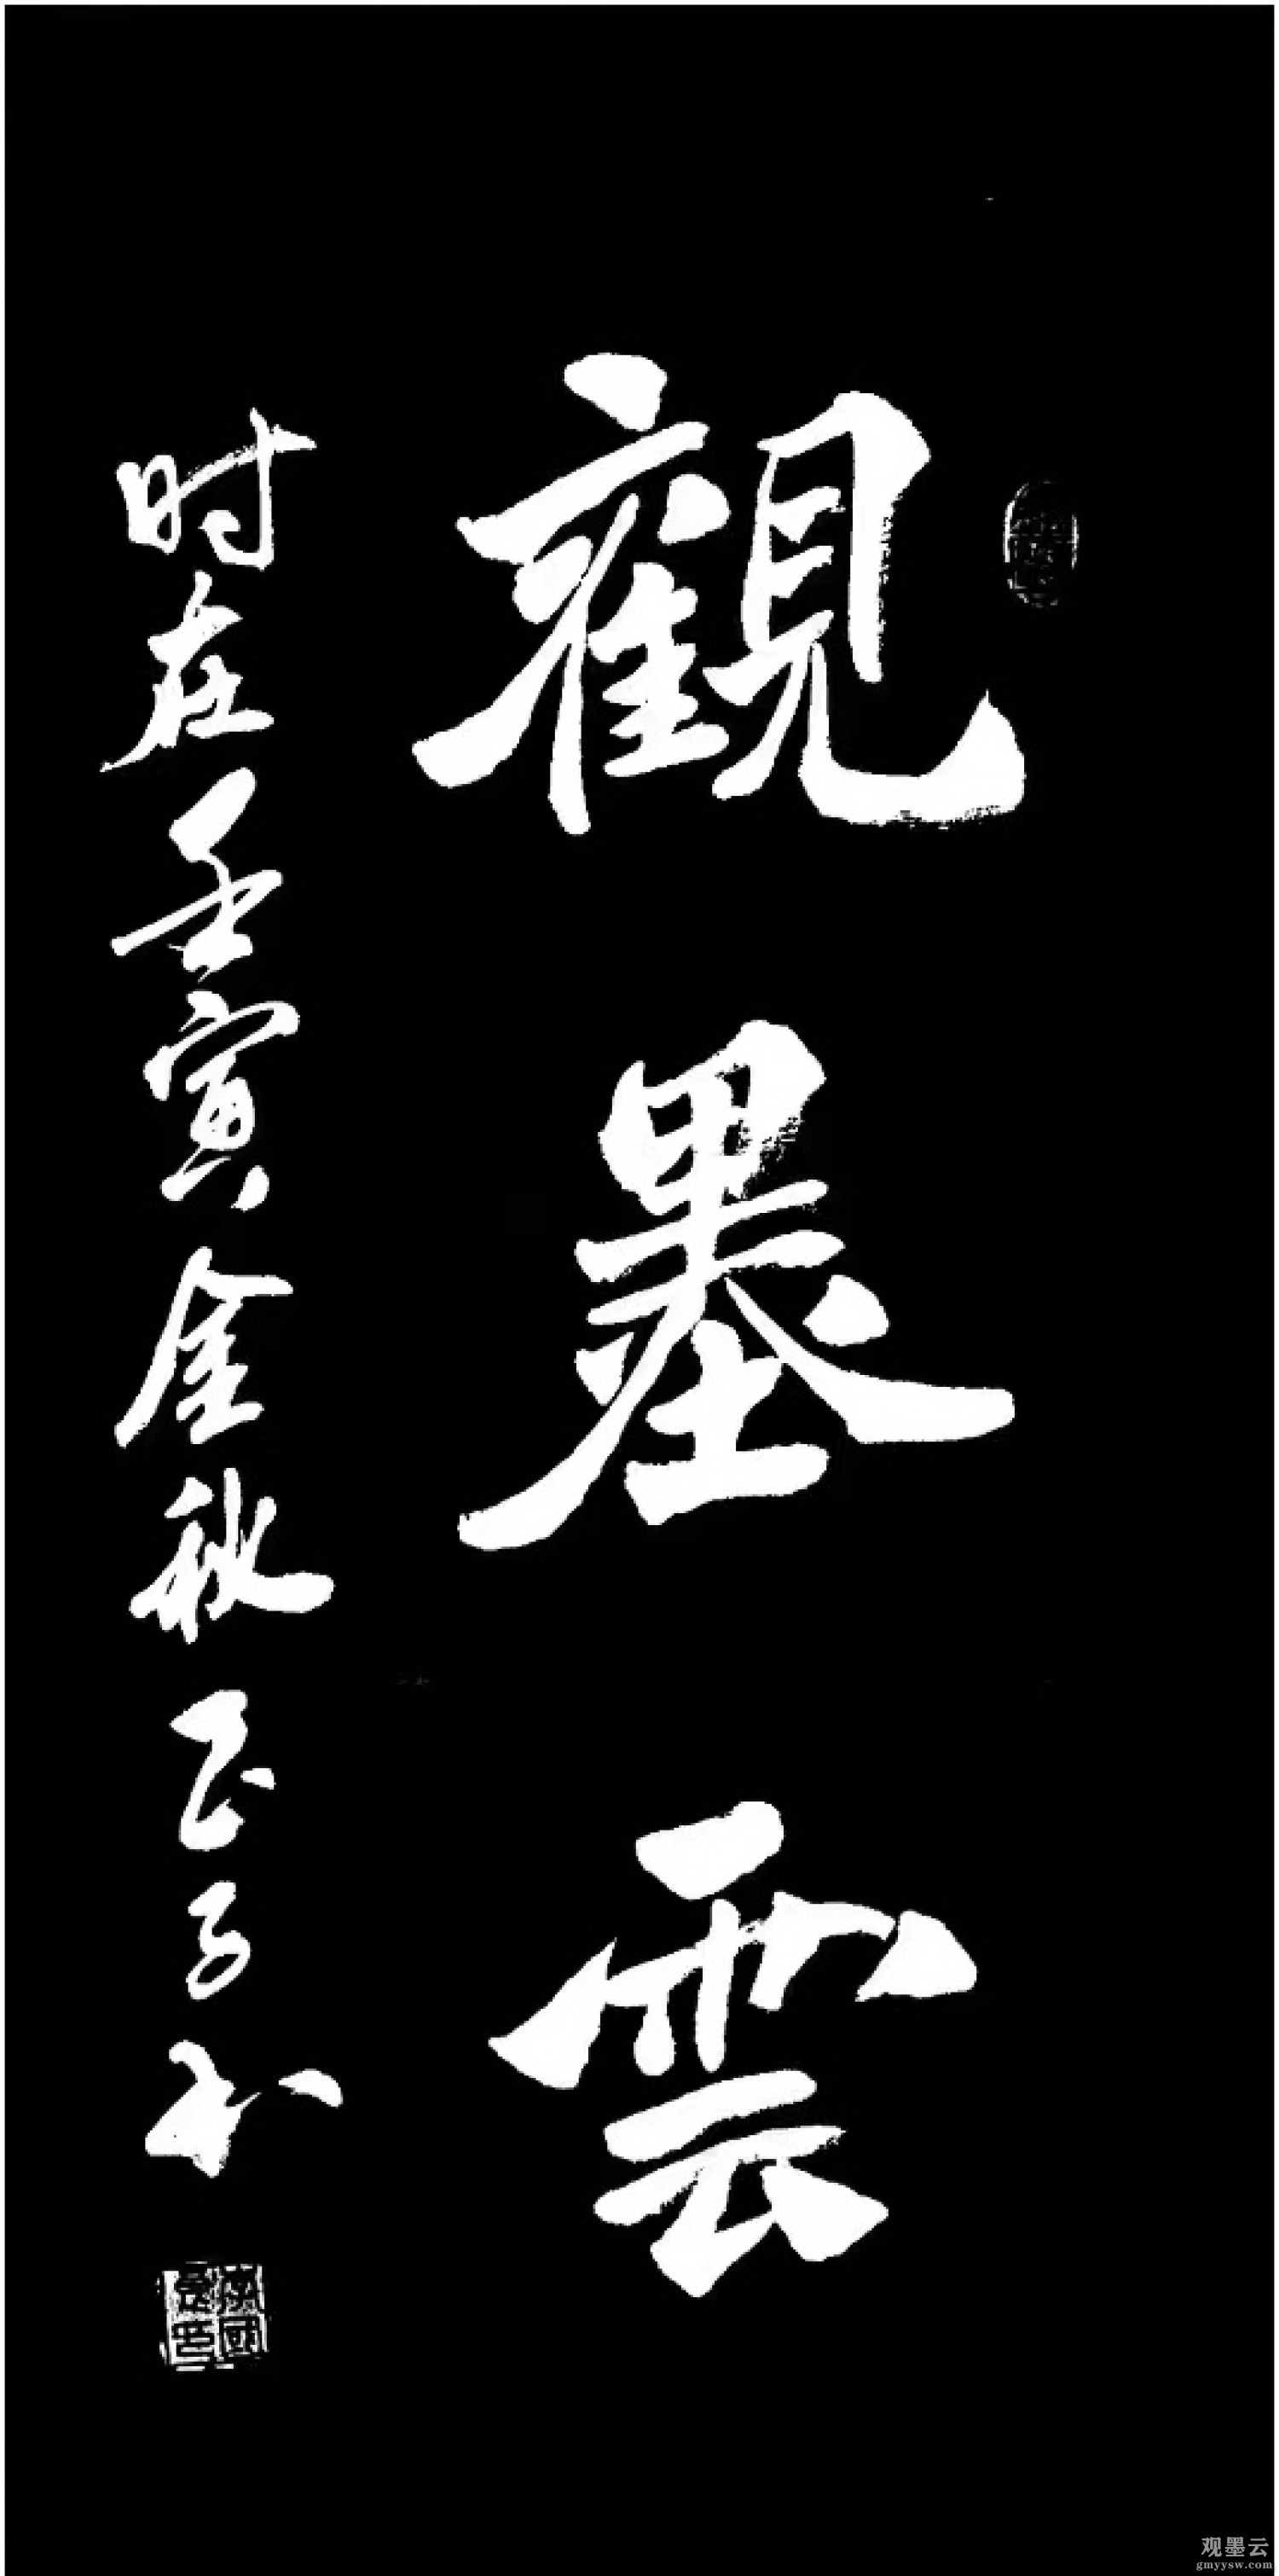 觀墨雲
时在壬寅金秋正子书
观墨云
gmyysw.com